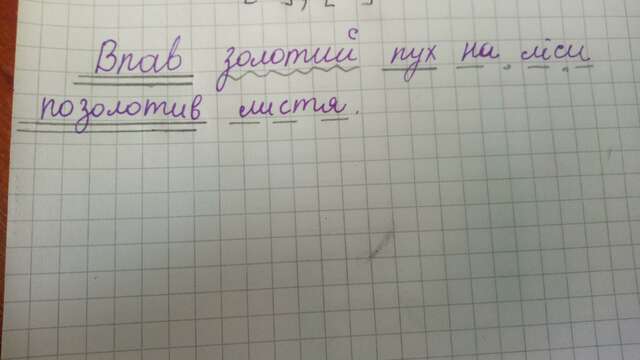 Впав золотий пух на ліси
позолотив листя.